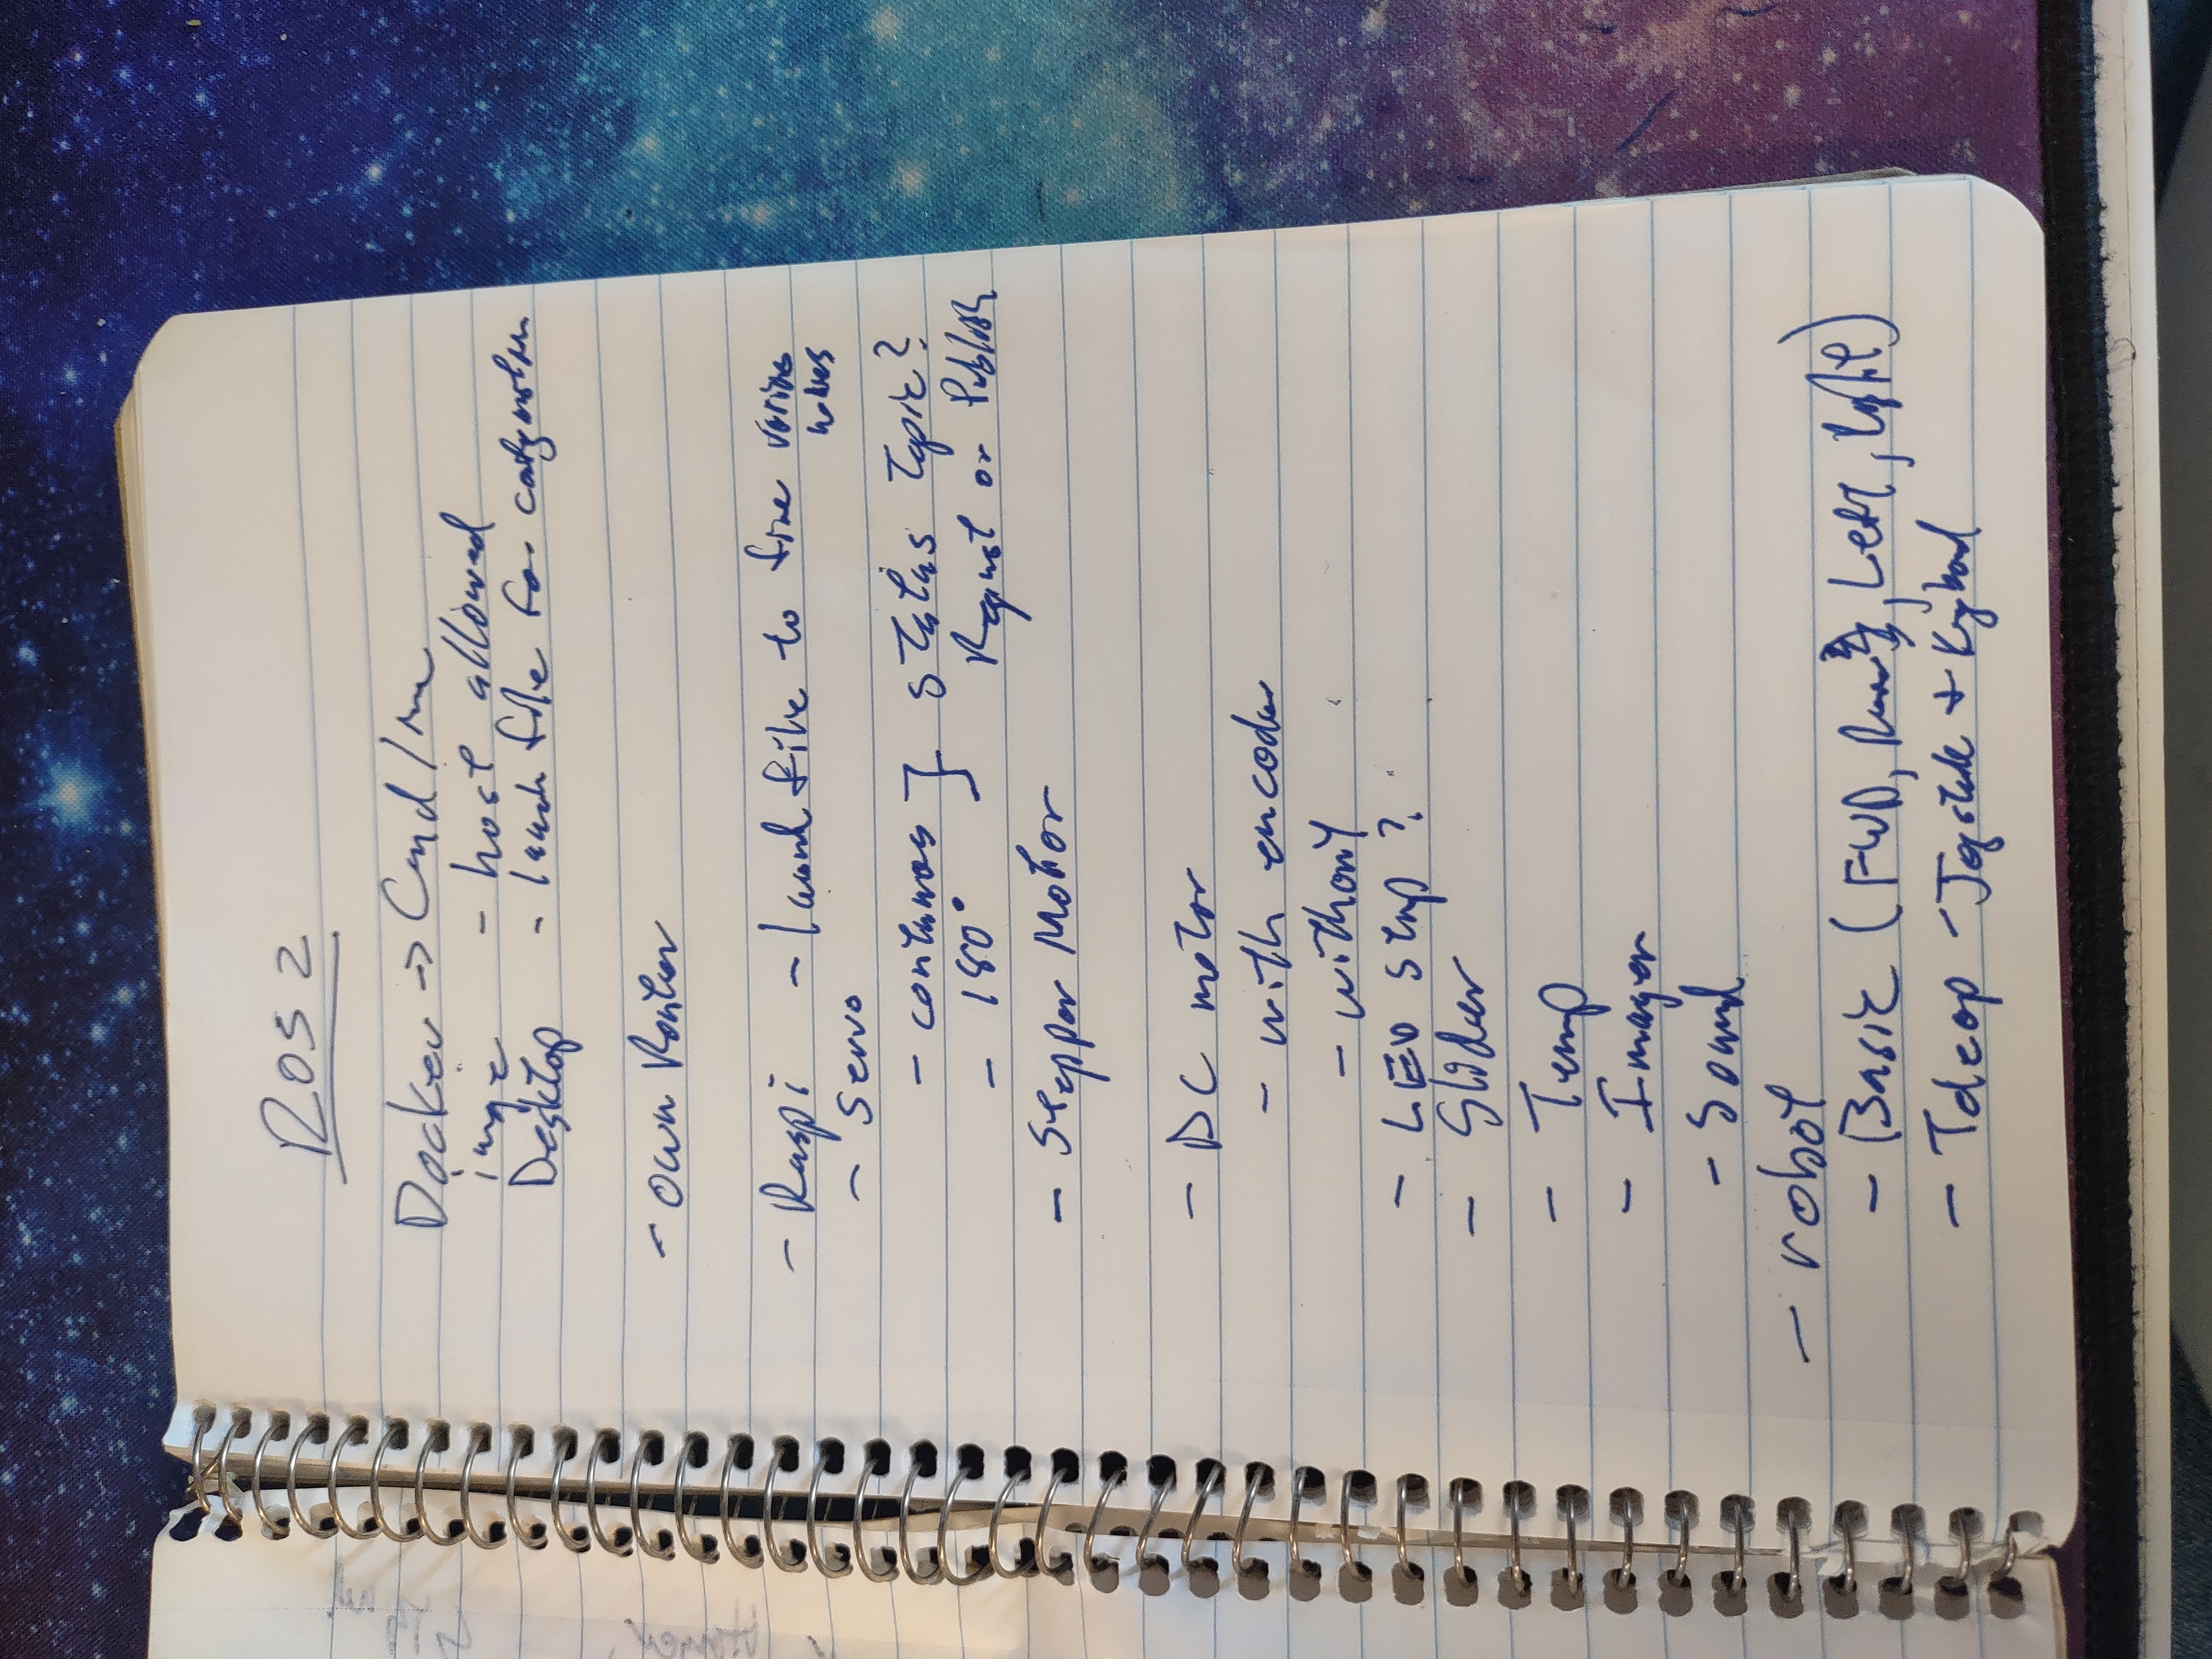 ROS 2
Docker → Cmd line
image - host allowed
Desktop - launch file for configuration
- own Router
- Raspi - launch file to fire various
nodes
- Servo
- continuous } status Topic?
- 180° Request or Publish
- Stepper Motor
- DC motor
- with encoder
- without
- LED strip ?
- Slider
- Temp
- Imager
- Sound
- robot
- Basic (FWD, , Left, Right)
- Teleop - Joystick + Keyboard